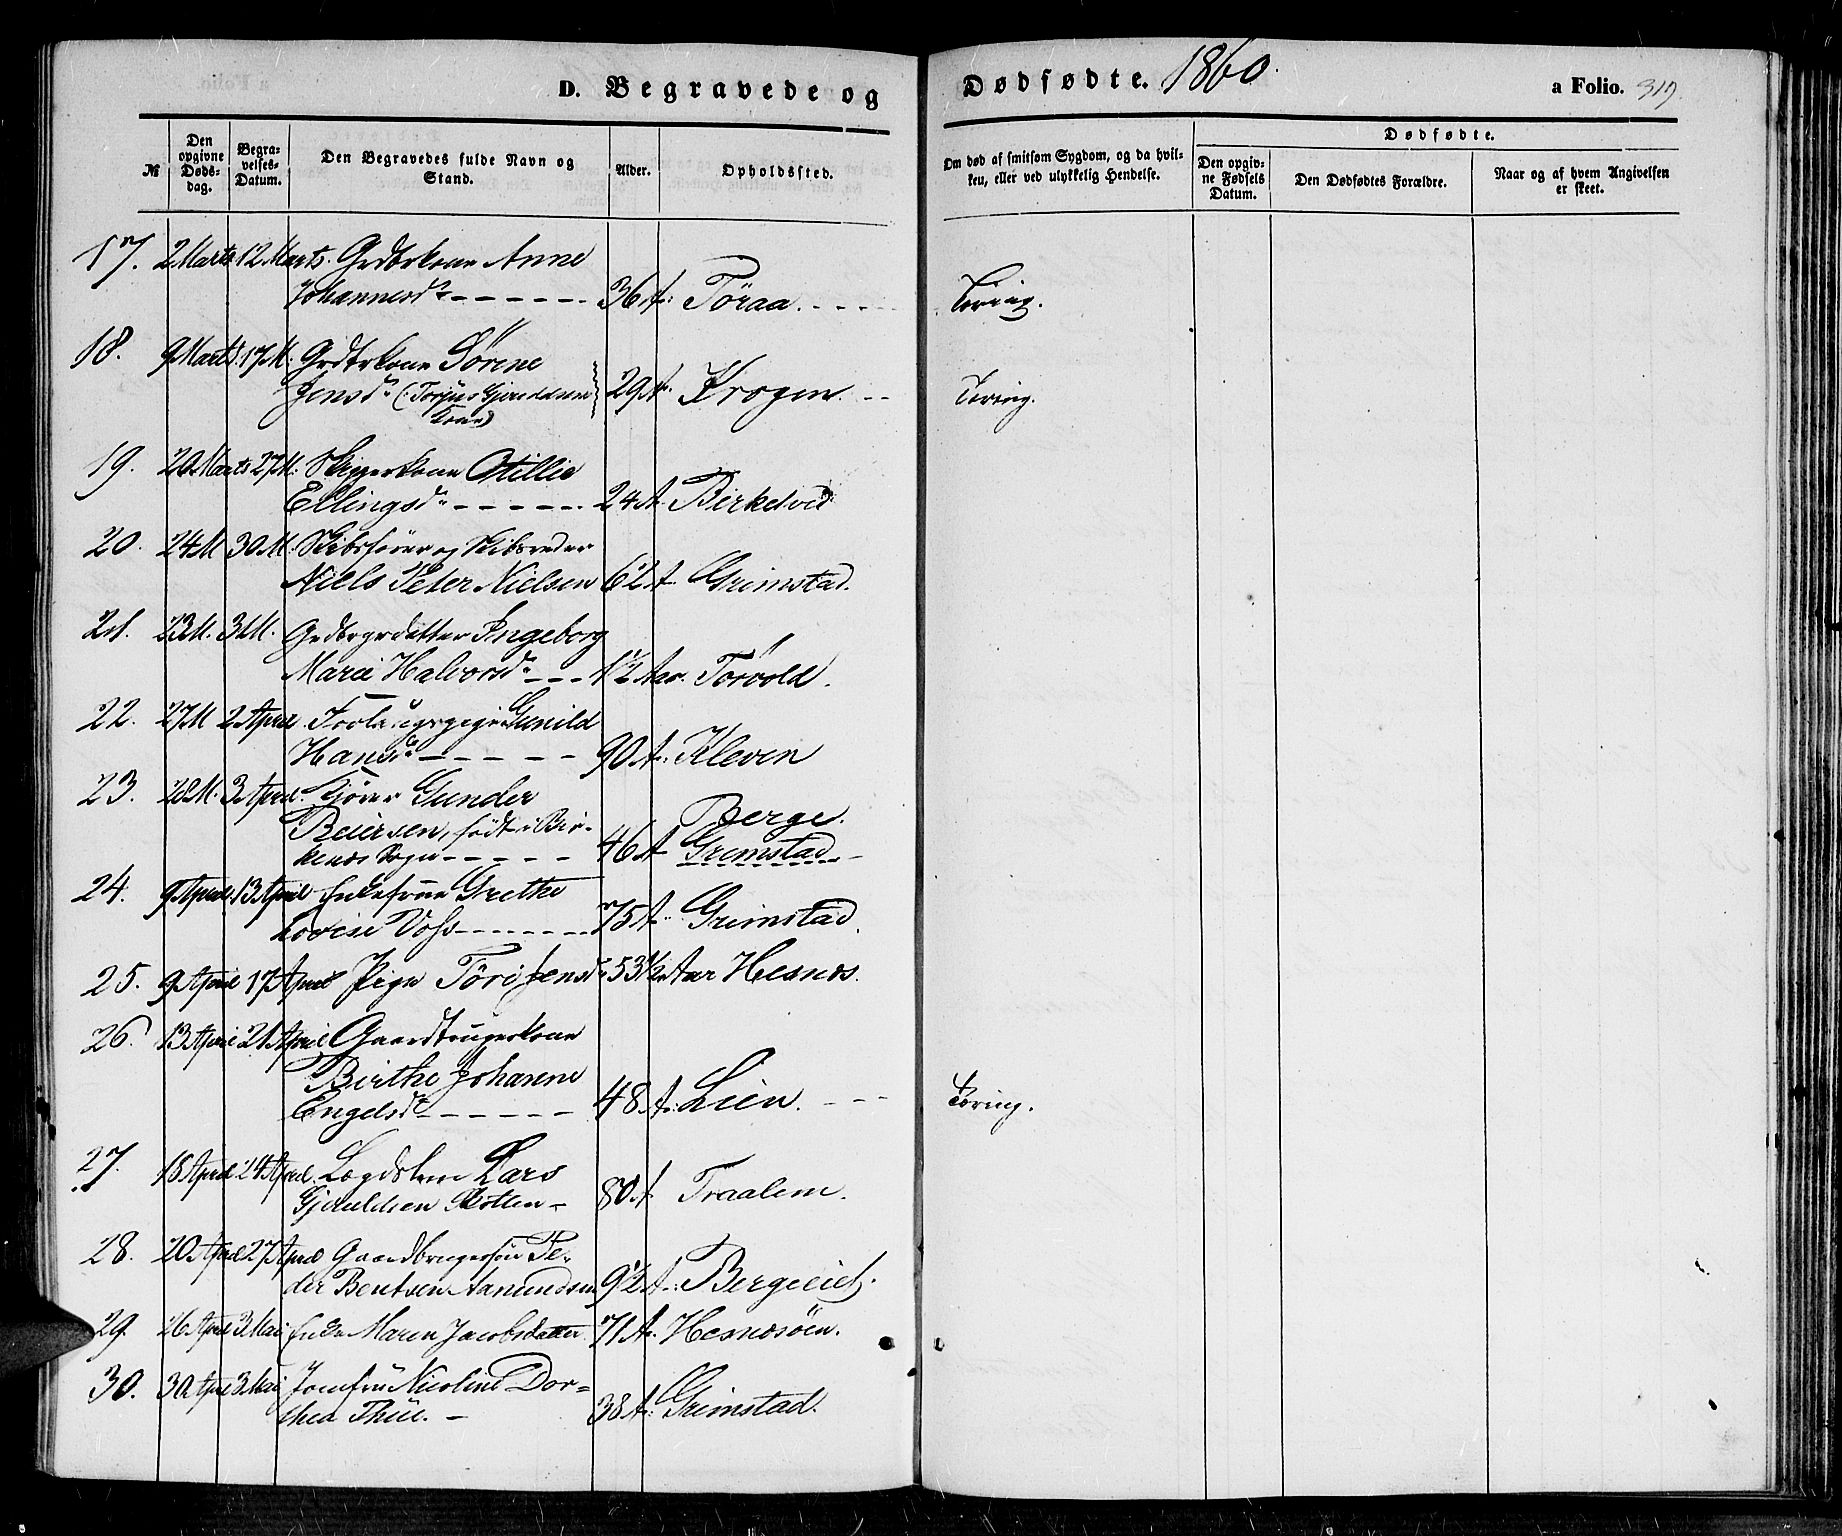 D. Begravede og
Dødfødte. 1860.
a Folio. 317.
№
Den opgivne Døds-dag.
Begra-velses-Datum.
Den Begravedes fulde Navn og Stand.
Alder.
Opholdssted.
Om død af smitsom Sygdom, og da hvil-ken, eller ved ulykkelig Hendelse.
Dødfødte.
Den opgiv-ne Fødsels Datum.
Den Dødfødtes Forældre.
Naar og af hvem Angivelsen er skeet.
17. 2 Marts 12 Marts. Grdbrkone Anne
Johannesdr 36 A: Töraa. Tæring.
18. 9 Marts 17 M. Grdbrkone Sörine
Jensdr (: Torjus Gjeruldsens 29 A. Krogen. Tæring.
Kone)
19. 20 Marts 27 M: Skipperkone Otillie
Ellingsdr 24 A. Birkedal
20. 24 M 30 M: Skibsfører og Skibsreder
Niels Peter Nielsen 62 A. Grimstad.
21. 23 M. 31 M. Grdbrgrdatter Ingeborg
Marie Halvorsdr 1½ Aar. Törvold.
22. 27 M 2 April Gunild
Hansdr 90 A. Kleven
23. 28 M. 3 April. Gunder
Reiersen, født i Bir- Berge.
kenæs Sogn 46 A Grimstad
24. 9 April 13 April Enkefrue Grethe
Lovise Voss 75 A. Grimstad.
25. 9 April 17 April Pige Töri Jensdr 53½ Aar Hesnæs.
26. 13 April 21 April Gaardbrugerkone
Birthe Johanne
Engelsdr 48 A: Lien. Tæring.
27. 18 April 24 April. Lægdslem Lars
Gjeruldsen Skotten 80 A Traalem.
28. 20 April 27 April Gaardbrugersøn Pe-
der Bentsen Aamundsen 9½ A. Bergeeiet.
29. 26 April 3 Mai Enke Maren Jacobsdatter 71 A. Hesnæsöen.
30. 30 April 3 Mai Jomfru Nicoline Dor=
thea Thue. 38 A: Grimstad.